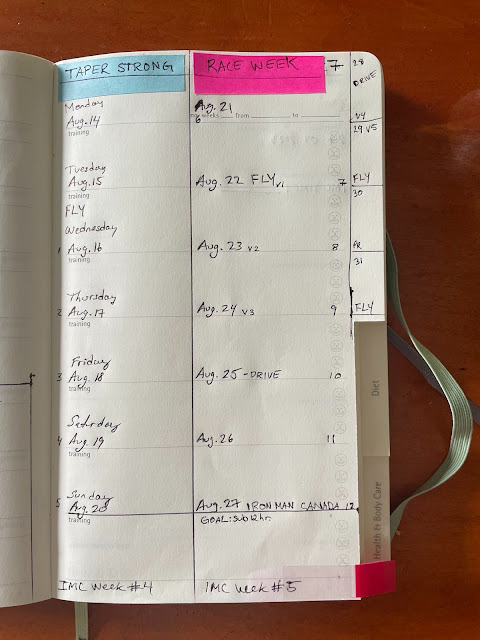 TAPER STRONG
Monday
Aug. 14
training
Tuesday
Aug. 15
training
FLY
Wednesday
1 Aug. 16
training
Thursday
2 Aug. 17
training
Friday
3 Aug. 18
training
Saturday
4 Aug. 19
training
Sunday
5 Aug. 20
training
IMC Week #4
RACE WEEK 7
Aug. 21
6 weeks from to
Aug. 22 FLY V1 7
Aug. 23 V2 8
Aug. 24 V3 9
Aug. 25 - DRIVE 10
Aug. 26 11
Aug. 27 IRONMAN CANADA 12
GOAL: sub 12hr.
IMC Week #5
28
DRIVE
V4
29 V5
FLY
30
PR
31
FLY
Diet
Health & Body Care